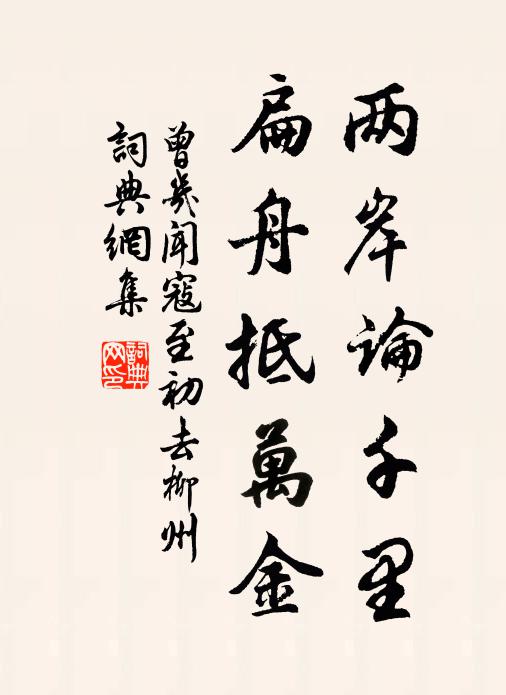 两岸論千里
扁舟抵萬金
曾幾聞寇至初去柳州
詞典網集
詞典网印